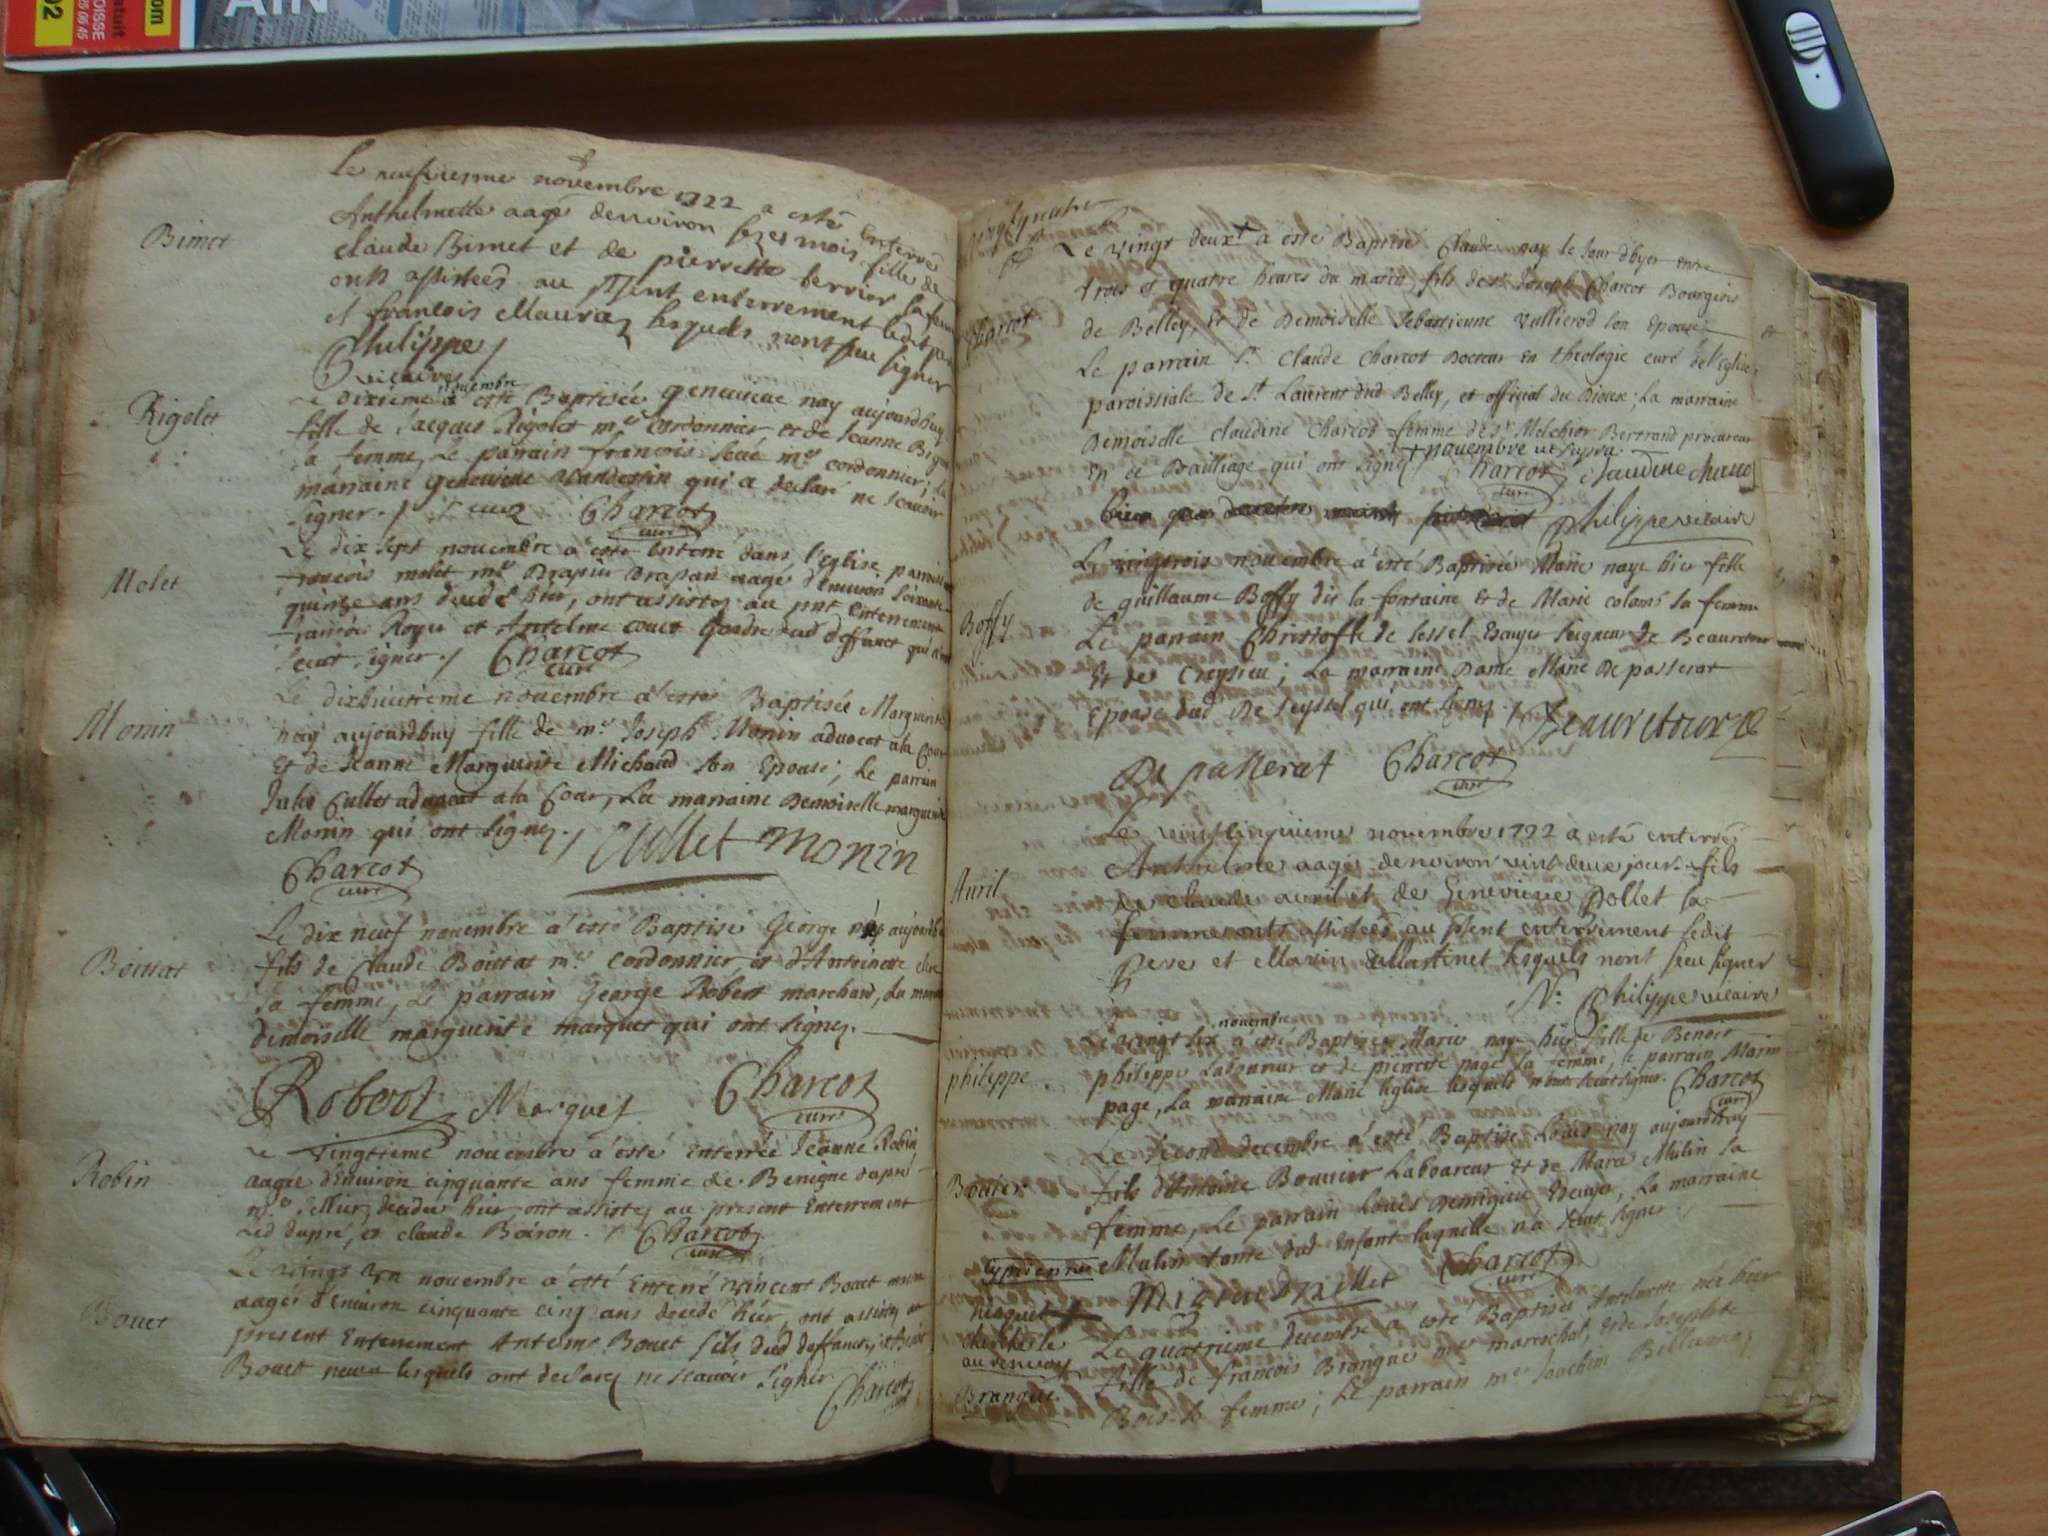 AIN
.com
02
gratuit
Le neufviesme novembre 1722 a esté enterré
Anthelmette aagé denviron sezes mois fille de
Bimet
Claude Bimet et de pierrette berrier sa femme
onts assistees au psent enterrement ledit pere
et francois Mauraz lesquels nonts seu signer
Philippe
vicaire
novembre
Le dixieme a esté Baptisée genevieve nay aujourdhuy
Rigolet
fille de Jacques Rigolet me cordonnier et de Jeanne
sa femme, Le parrain francois me cordonnier; La
marraine genevieve qui a declaré ne scavoir
signer./. Charcot
curé
Le dix sept novembre a esté Enterré dans l'eglise
Molet
francois molet me Drapier Drapan aagé d'environ soixante
quinze ans decedé hier, ont assistez au pnt Enterrement
francois Royer et Antelme couet Gendre dud deffunct qui
sceut signer./. Charcot
curé
Le dixhuitieme novembre a esté Baptisée Marguerite
Monin
nay aujourdhuy fille de me Joseph Monin advocat a la Cour
Et de Jeanne Marguerite Michaud son Epouse; Le parrain
Jules Cullet advocat a la Cour, La marraine Demoiselle marguerite
Monin qui ont signez./. Cullet Monin
Charcot
curé
Le dix neuf novembre a esté Baptisé George aujourdhuy
Boittat
fils de Claude Boittat me cordonnier et d'Antoinette
sa femme, Le parrain George Robert marchand, La marraine
demoiselle marguerite marquet qui ont signez.
Robert Marquet Charcot
curé
Le vingtieme novembre a esté Enterrée Jeanne Robin
Robin
aagée d'Environ cinquante ans femme de Benigne dupré
me decedee hier, ont assistez au present Enterrement
Led dupré, et claude Boiron./. Charcot
curé
Le vingt un novembre a esté Enterré vincent Bouet
Bouet
aagés d'Environ cinquante cinq ans decedé hier, ont assistez au
present Enterrement Antelme Bouet fils dud deffunct, et
Bouet neveu lesquels ont declarez ne scavoir signer
Charcot
curé
Le vingt deux + a esté Baptisé Claude nay le Jour d'hyer entre
trois et quatre heures du matin fils de sr Joseph Charcot Bourgeois
Charcot
de Belley, Et de Demoiselle Sebastienne vullierod son Epouse
Le parrain Sr Claude Charcot Docteur En theologie curé de l'Eglise
paroissiale de St Laurent dud Belley, et official du Diocese; La marraine
Demoiselle claudine Charcot femme de Sr Melchior Bertrand procureur
+ novembre ut supra
En ce Bailliage qui ont signez Charcot Claudine charcot
curé
philippe vicaire
Le vingttrois novembre a esté Baptisée Marie naye hier fille
Boffy
de guillaume Boffy dit la fontaine Et de Marie colomb sa femme
Le parrain Christofle de Seissel Escuyer Seigneur de Beauretour
Et de Creysieu; La marraine Dame Marie De passerat
Epouse dud De Seyssel qui ont signez./. Beauretour
De passerat Charcot
curé
Le vintcinquieme novembre 1722 a esté enterrés
Anthelme aagés denviron vint deux jour fils
Avril
de claude avril et de Genevieve pollet sa
femme onts assistees au psent enterrement ledit
pere et Marin Martinet lesquels nont seeu signer
philippe vicaire
novembre
Le vingt six a esté Baptisée Marie naye hier fille de Benoit
philippe
philippe Laboureur et de pierrette page sa femme, le parrain Marin
page, La marraine Marie leglise lesquels n'ont sceut signer. Charcot
curé
Le second decembre a esté Baptisé Louis nay aujourdhuy
Bouier
fils d'Antoine Bouvier Laboureur Et de Marie Mulin sa
femme, Le parrain Louis Demigieu Escuyer, La marraine
Mulin tante dud Enfant laquelle n'a sceut signer
Charcot
curé
cherche le
au renvoy
Le quatrieme decembre a esté Baptisée Antelmette née hier
Brangue
fille de francois Brangue me marechal, et de Josephte
Bois sa femme; Le parrain me Joachim